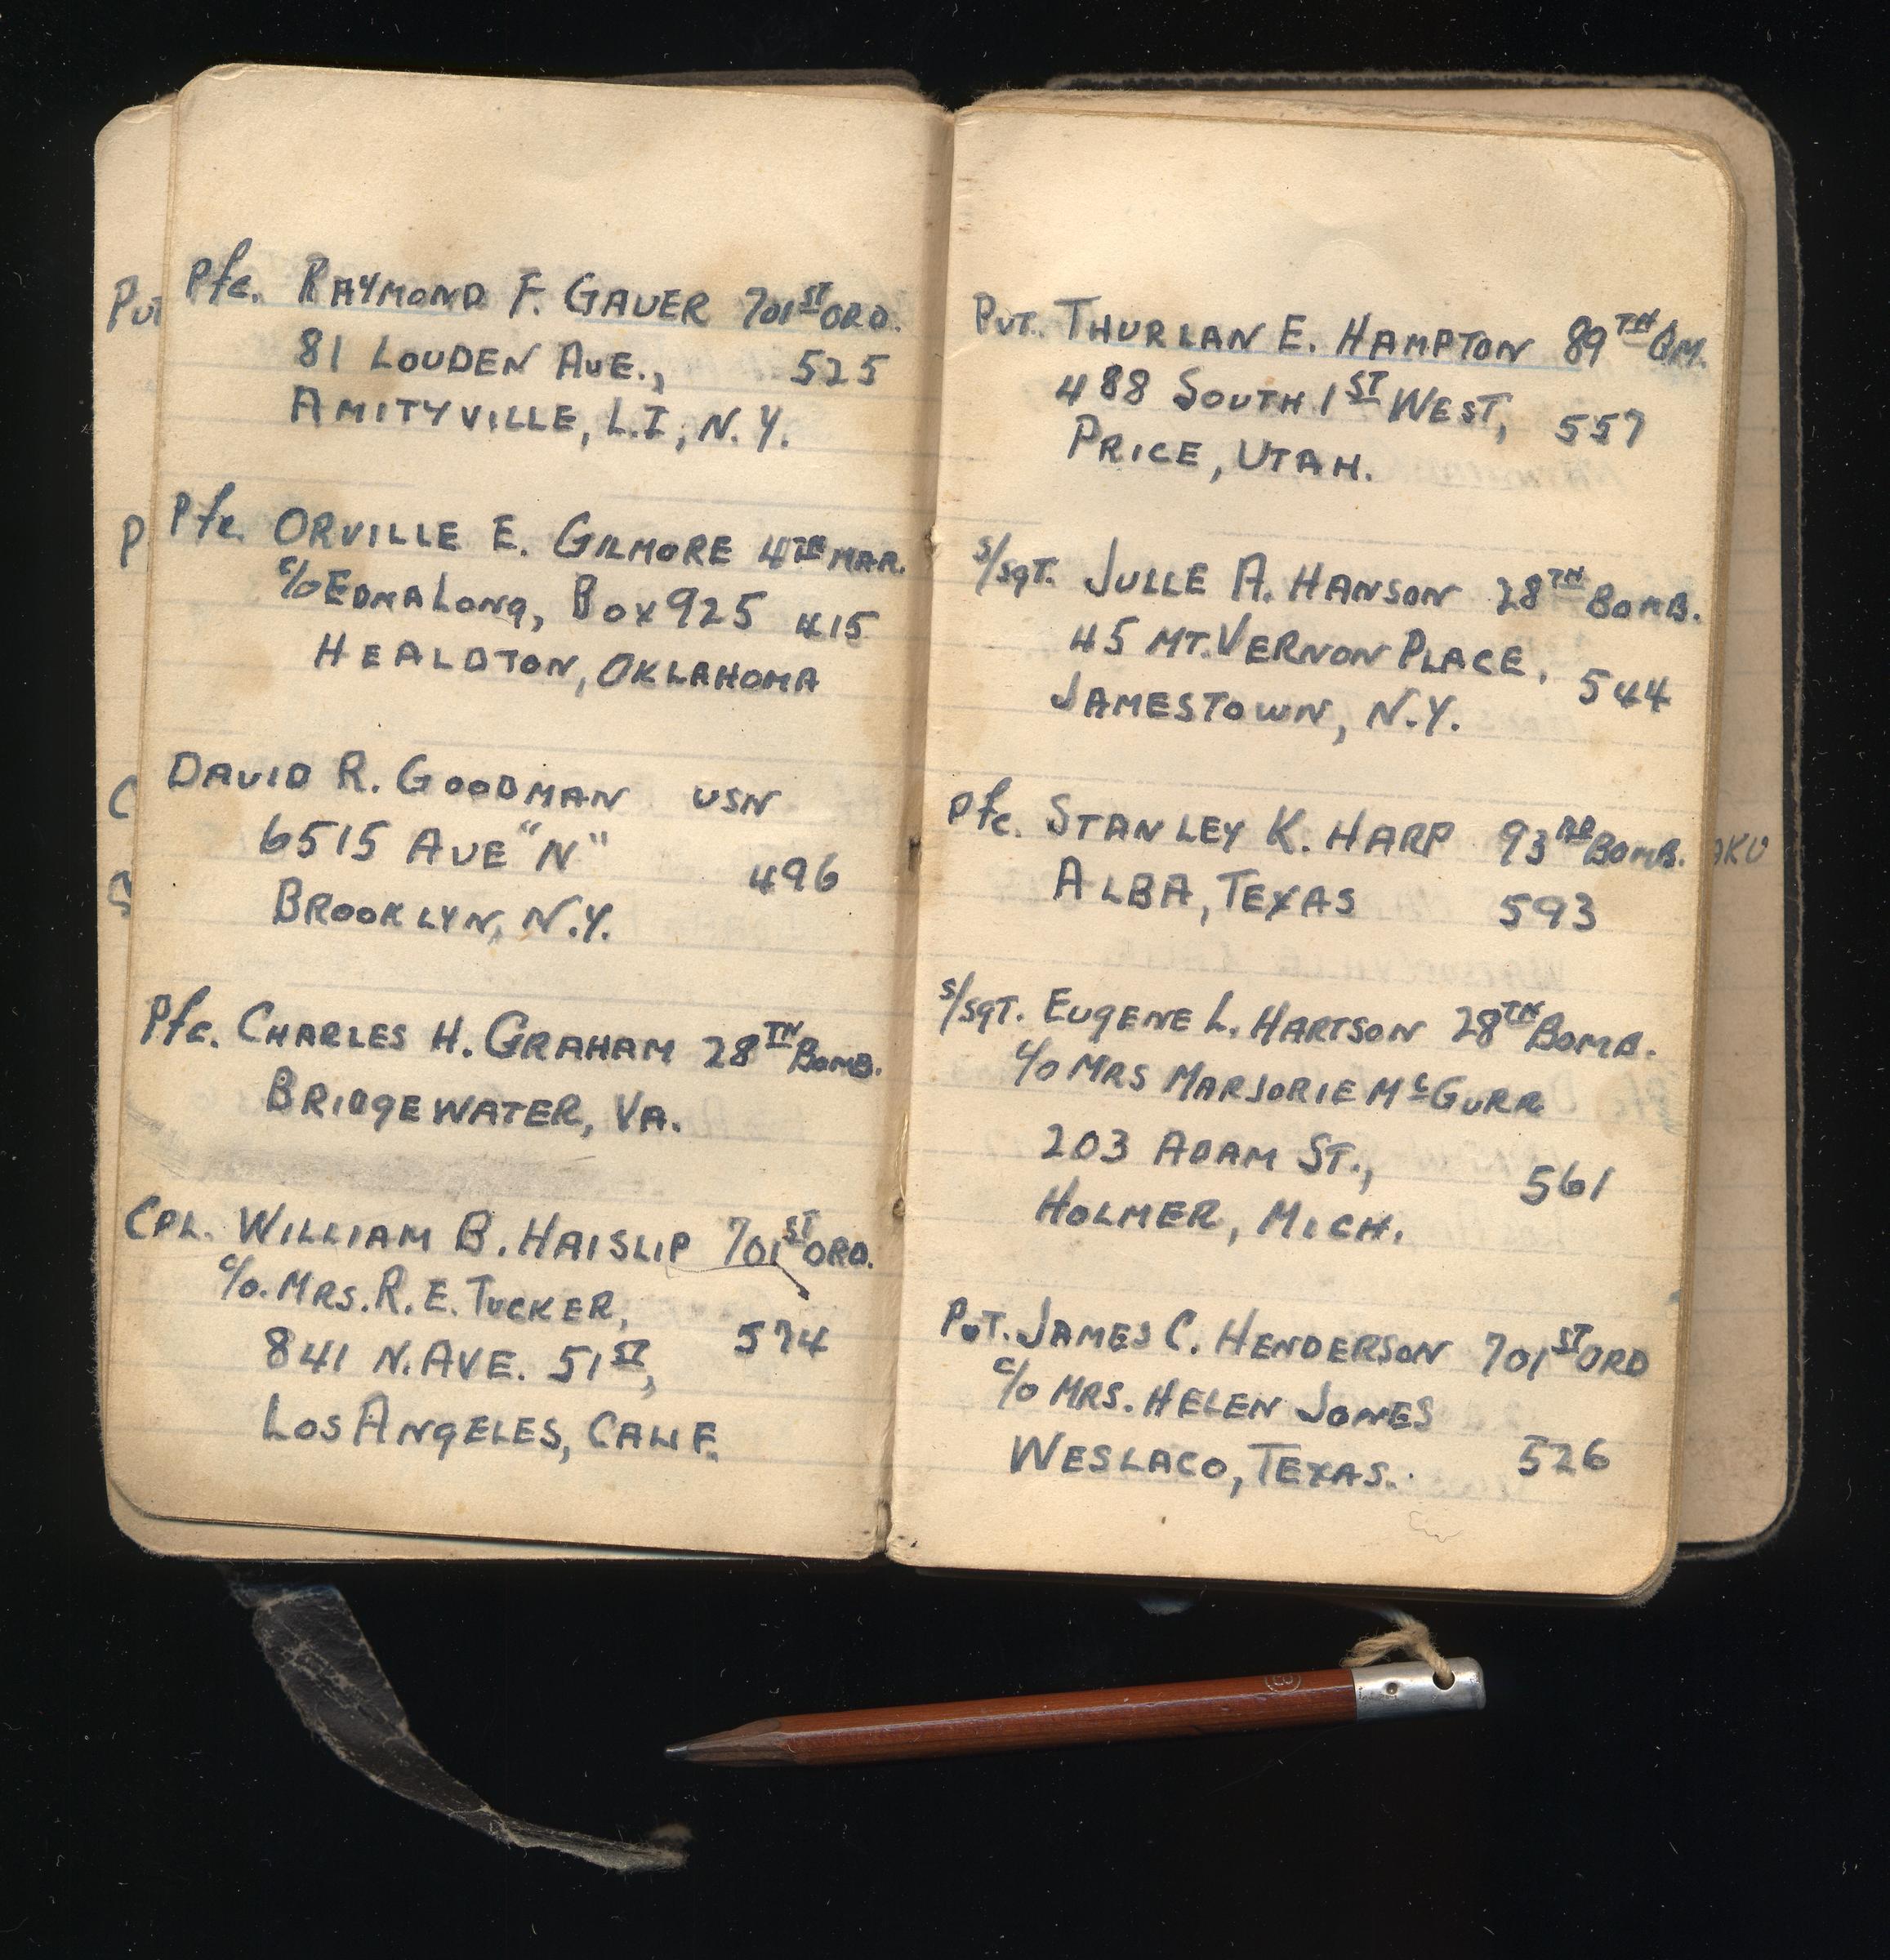 Pfc. RAYMOND F. GAUER 701ST ORD.
81 LOUDEN AVE., 525
AMITYVILLE, L.I., N.Y.
Pfc. ORVILLE E. GILMORE 4TH MAR.
c/o EDMA LONG, BOX 925 415
HEALDTON, OKLAHOMA
DAVID R. GOODMAN USN
6515 AVE "N"
496
BROOKLYN, N.Y.
Pfc. CHARLES H. GRAHAM 28TH BOMB.
BRIDGEWATER, VA.
CPL. WILLIAM B. HAISLIP 701ST ORD.
c/o. MRS. R. E. TUCKER,
841 N. AVE. 51ST, 574
LOS ANGELES, CALIF.
PVT. THURLAN E. HAMPTON 89TH QM.
488 SOUTH 1ST WEST, 557
PRICE, UTAH.
S/SGT. JULLE A. HANSON 28TH BOMB.
45 MT. VERNON PLACE, 544
JAMESTOWN, N.Y.
Pfc. STANLEY K. HARP 93RD BOMB.
ALBA, TEXAS 593
S/SGT. EUGENE L. HARTSON 28TH BOMB.
c/o MRS MARJORIE McGURR
203 ADAM ST., 561
HOLMER, MICH.
PVT. JAMES C. HENDERSON 701ST ORD
c/o MRS. HELEN JONES
WESLACO, TEXAS. 526